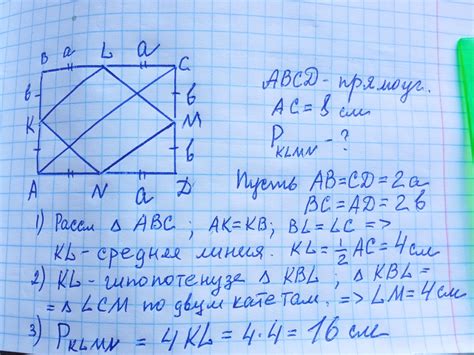 B a L a C
b b
K M
b
A N a D
ABCD - прямоуг.
AC = 8 см
P_KLMN - ?
Пусть AB=CD=2a
BC=AD=2b
1) Рассм △ ABC ; AK=KB; BL=LC =>
KL - средняя линия. KL = 1/2 AC = 4 см
2) KL - гипопотенузе △ KBL ; △ KBL =
= △ LCM по двум катетам. => LM = 4 см
3) P_KLMN = 4KL = 4·4 = 16 см